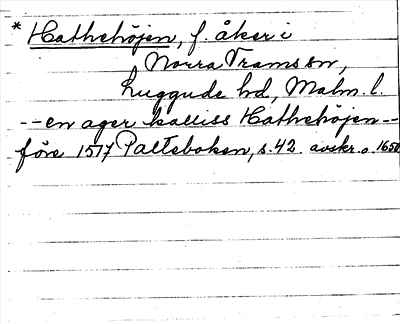 * Hathehöjen, f. åker i
Norra Trams sn,
Luggude hd, Malm. l.
-- en ager kalliss Hathehöjen --
före 1517 Paltebokon, s. 42. avskr. o. 1650